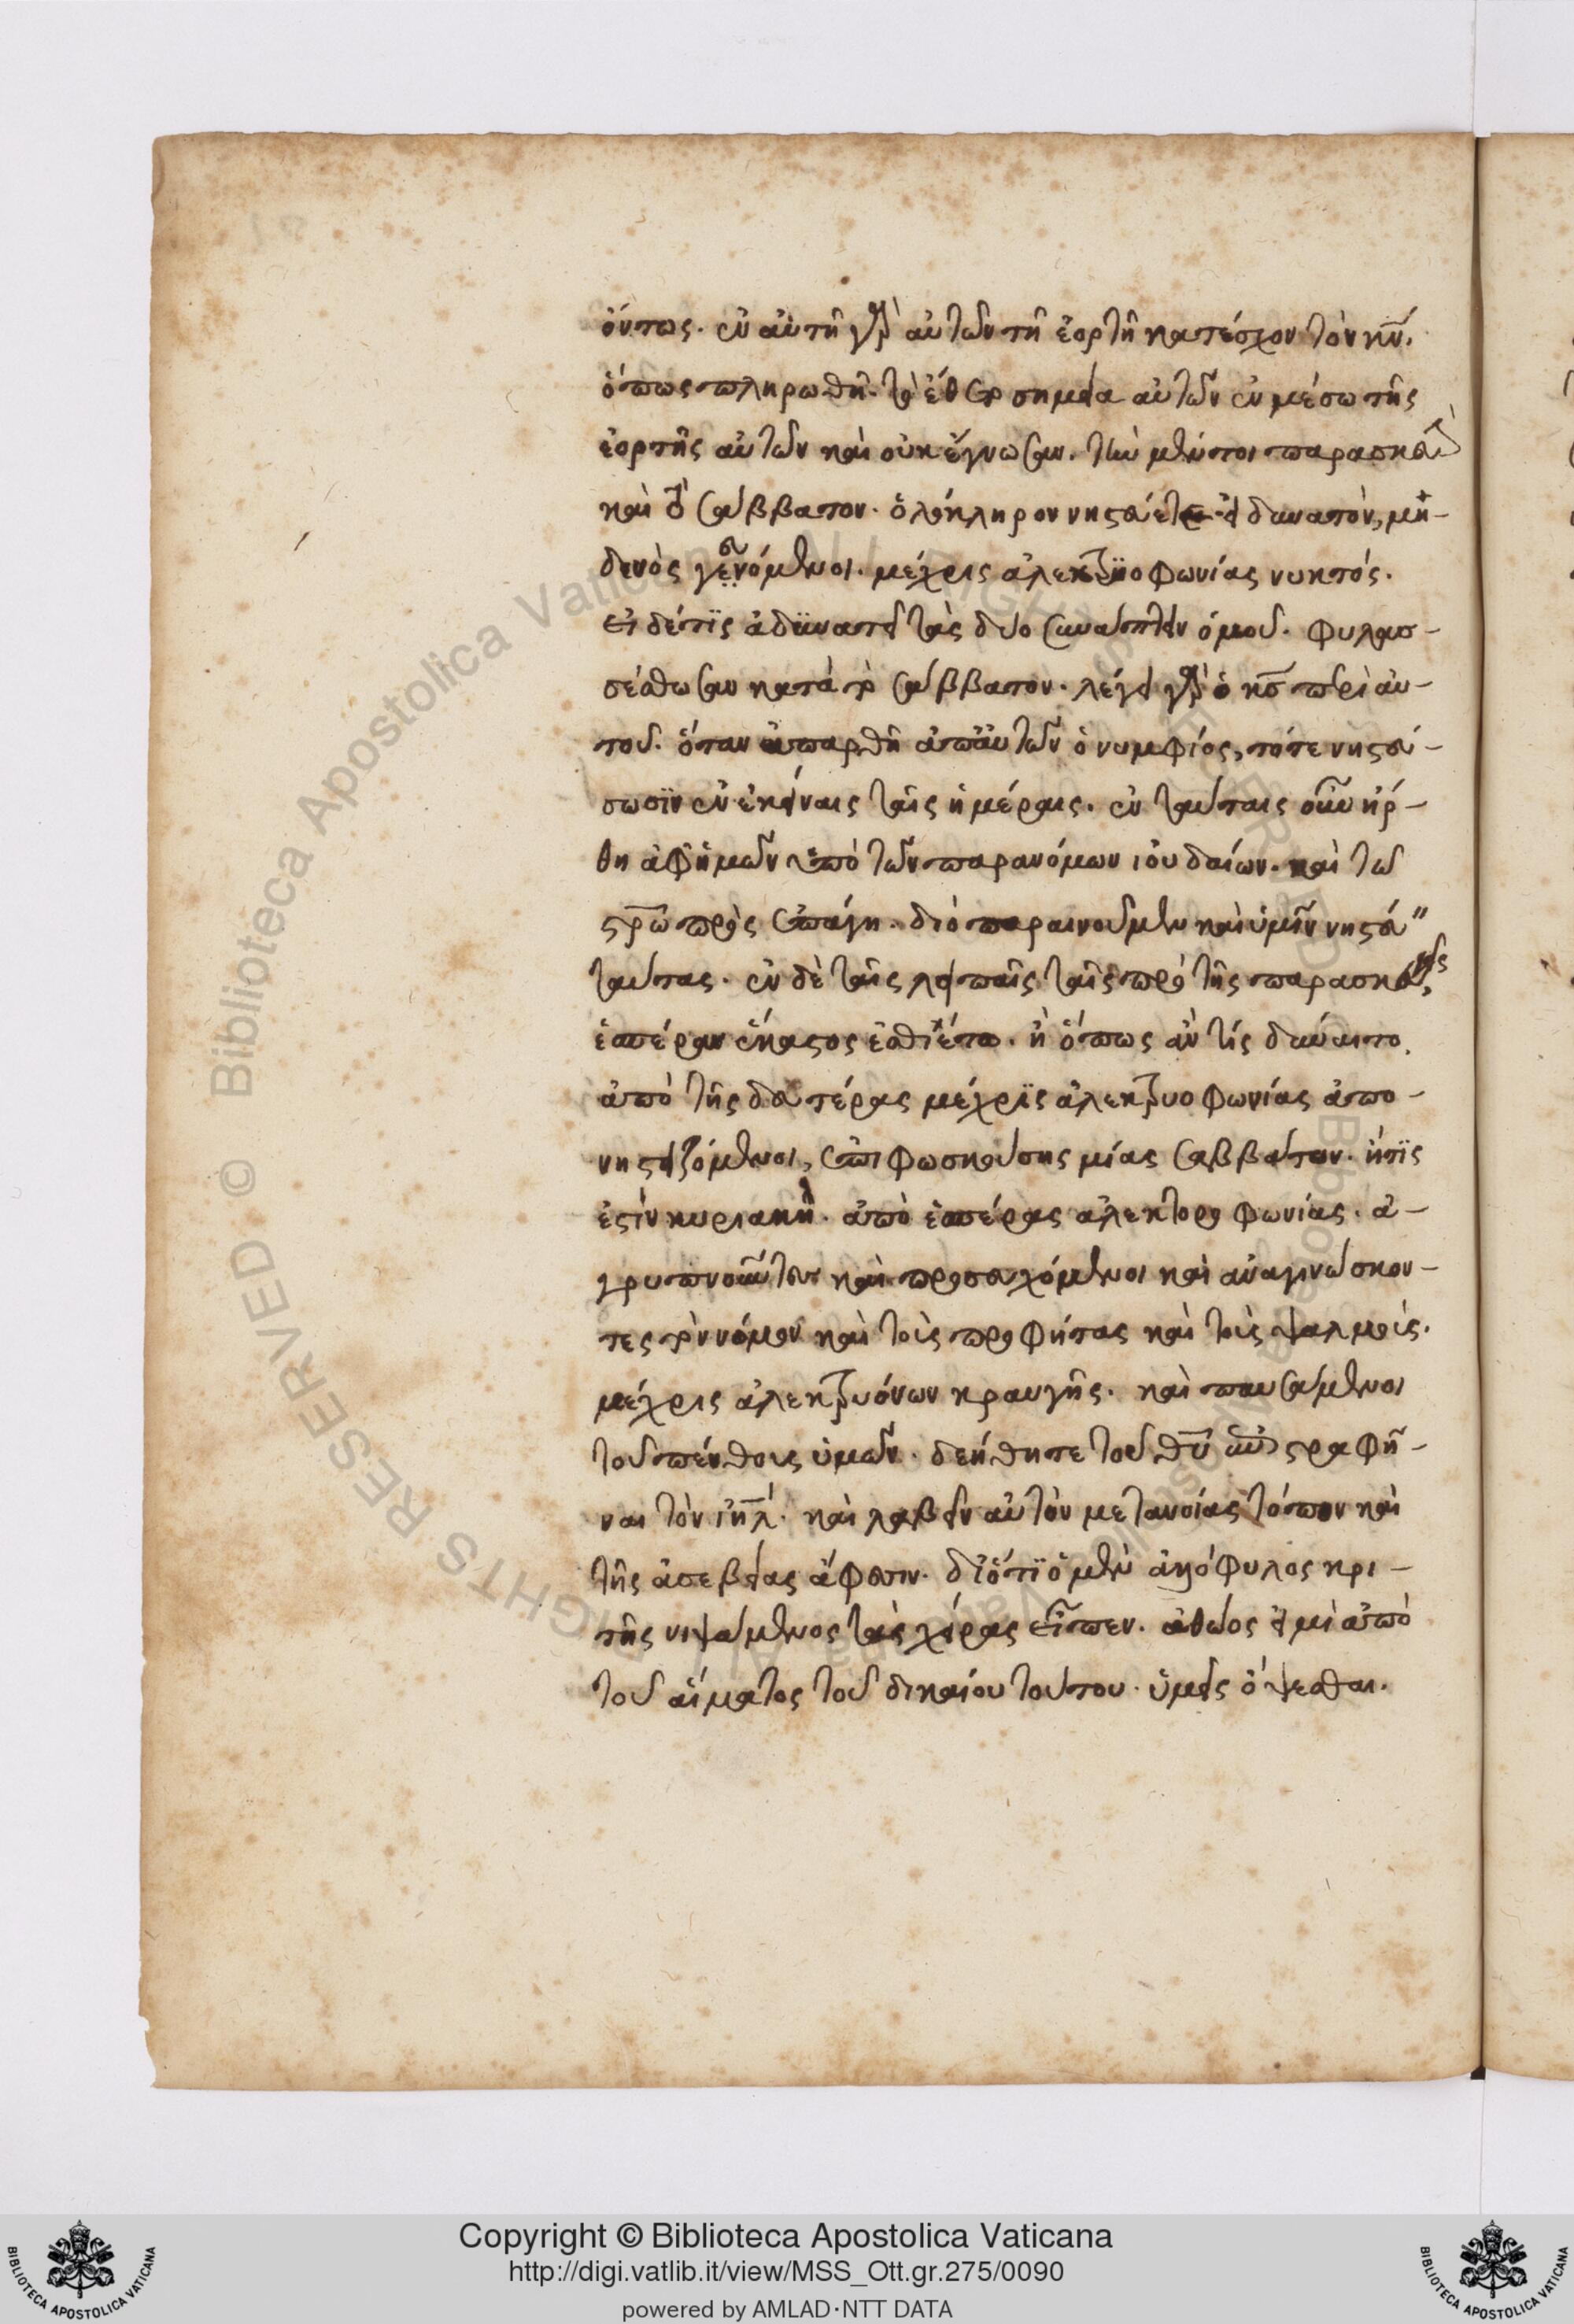 ὄντως. ἐν αὐτῆ γὰρ αὐτῶν τῆ ἑορτῆ κατέσχον τὸν κν̅.
ὅπως πληρωθῆ. τὸ ἔθεντο σημεῖα αὐτῶν ἐν μέσω τῆς
ἑορτῆς αὐτῶν καὶ οὐκ ἔγνωσαν. τὴν μέντοι παρασκευὴν
καὶ τὸ σάββατον. ὁλόκληρον νηστεύετε εἰ δυνατὸν, μη-
δενὸς γευόμενοι. μέχρις ἀλεκτρυοφωνίας νυκτός.
εἰ δέ τϊς ἀδϋνατεῖ τὰς δύο συνάπτειν ὁμοῦ. φυλασ-
σέσθωσαν κατὰ τὸ σάββατον. λέγει γὰρ ὁ κς̅ περὶ αὐ-
τοῦ. ὅταν ἀπαρθῆ ἀπ' αὐτῶν ὁ νυμφίος, τότε νηστεύ-
σωσϊν ἐν ἐκείναις ταῖς ἡμέραις. ἐν ταύταις οὖν ἤρ-
θη ἀφ' ἡμῶν ὑπὸ τῶν παρανόμων ἰουδαίων. καὶ τῶ
στρω̅ προσεπάγη. διὸ παραινοῦμεν καὶ ὑμῖν νηστεύ"
ταύτας. ἐν δὲ ταῖς λοιπαῖς ταῖς πρὸ τῆς παρασκευῆς,
ἑσπέραν ἕκαστος ἐσθιέτω. ἢ ὅπως ἄν τίς δύναιτο.
ἀπὸ τῆς δευτέρας μέχρϊς ἀλεκτρυοφωνίας ἀπο-
νηστιζόμενοι, ἐπιφωσκούσης μίας σαββάτων. ἥτϊς
ἐστὶν κυριακὴ. ἀπὸ ἑσπέρας ἀλεκτοροφωνίας. ἀ-
γρυπνοῦντες καὶ προσευχόμενοι καὶ ἀναγινώσκον-
τες τὸν νόμον καὶ τοὺς προφήτας καὶ τοὺς ψαλμούς.
μέχρις ἀλεκτρυόνων κραυγῆς. καὶ παυσάμενοι
τοῦ πένθους ὑμῶν. δεήθητε τοῦ θυ̅ ἐπιστραφῆ-
ναι τὸν ἰηλ̅. καὶ λαβεῖν αὐτὸν μετανοίας τόπον καὶ
τῆς ἀσεβείας ἄφεσιν. διότϊ ὁ μὲν ἀλλόφυλος κρι-
τὴς νιψάμενος τὰς χεῖρας εἶπεν. ἀθῶος εἰμὶ ἀπὸ
τοῦ αἵματος τοῦ δικαίου τούτου. ὑμεῖς ὄψεσθαι.
Copyright © Biblioteca Apostolica Vaticana
http://digi.vatlib.it/view/MSS_Ott.gr.275/0090
powered by AMLAD·NTT DATA